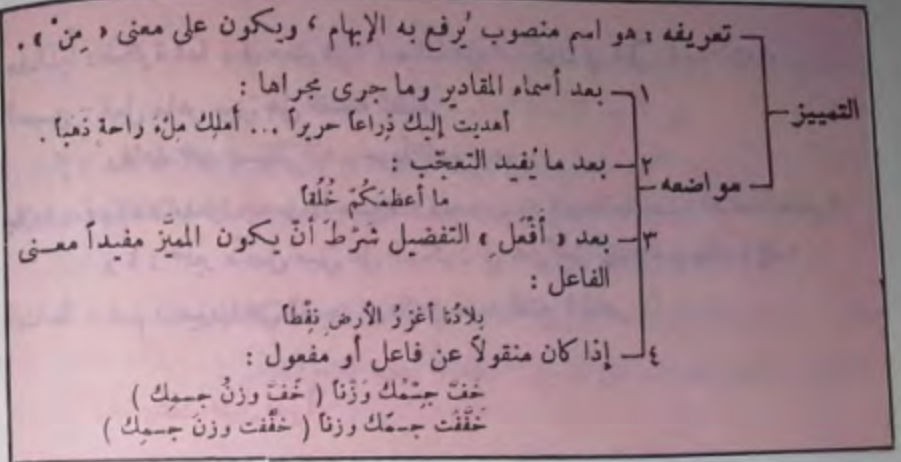 تعريفه : هو اسم منصوب يُرفع به الإبهام ، ويكون على معنى « مِنْ » .
التمييز
مواضعه
١ - بعد أسماء المقادير وما جرى مجراها :
أهديت إليك ذِراعاً حريراً ... أملِك مِلْءَ راحةٍ ذَهباً .
٢ - بعد ما يُفيد التعجّب :
ما أعظمَكُمْ خُلُقاً
٣ - بعد « أَفْعَلِ » التفضيل شرْطَ أنْ يكون المميَّز مفيداً معنى
الفاعل :
بِلادُنا أغزرُ الأرضِ نِفْطاً
٤ - إذا كان منقولاً عن فاعل أو مفعول :
خَفّ جِسْمُك وَزْناً ( خَفّ وزنُ جسمِك )
خَفَّفْت جسمَك وزناً ( خفّفت وزنَ جسمِك )